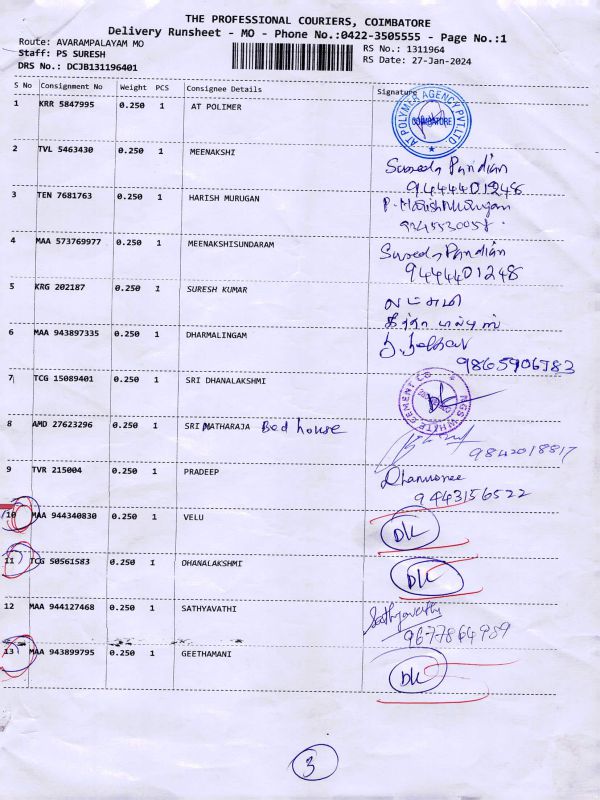 THE PROFESSIONAL COURIERS, COIMBATORE
Delivery Runsheet - MO - Phone No.:0422-3505555 - Page No.:1
Route: AVARAMPALAYAM MO
RS No.: 1311964
Staff: PS SURESH
RS Date: 27-Jan-2024
DRS No.: DCJB131196401
S No Consignment No Weight PCS Consignee Details Signature
1 KRR 5847995 0.250 1 AT POLIMER
AT POLYMER AGENCY PVT LTD
COIMBATORE
2 TVL 5463430 0.250 1 MEENAKSHI
Pandian
9444401248
3 TEN 7681763 0.250 1 HARISH MURUGAN
P. Harish Murugan
4 MAA 573769977 0.250 1 MEENAKSHISUNDARAM
Pandian
9444401248
5 KRG 202187 0.250 1 SURESH KUMAR
லட்சுமி
6 MAA 943897335 0.250 1 DHARMALINGAM
7 TCG 15089401 0.250 1 SRI DHANALAKSHMI
NGS WHITE CEMENT CO
8 AMD 27623296 0.250 1 SRI MATHARAJA Bed house
9842018817
9 TVR 215004 0.250 1 PRADEEP
9443156522
10 MAA 944340830 0.250 1 VELU
DK
11 TCG 50561583 0.250 1 DHANALAKSHMI
DK
12 MAA 944127468 0.250 1 SATHYAVATHI
Sathyavathy
9677864989
13 MAA 943899795 0.250 1 GEETHAMANI
DK
3